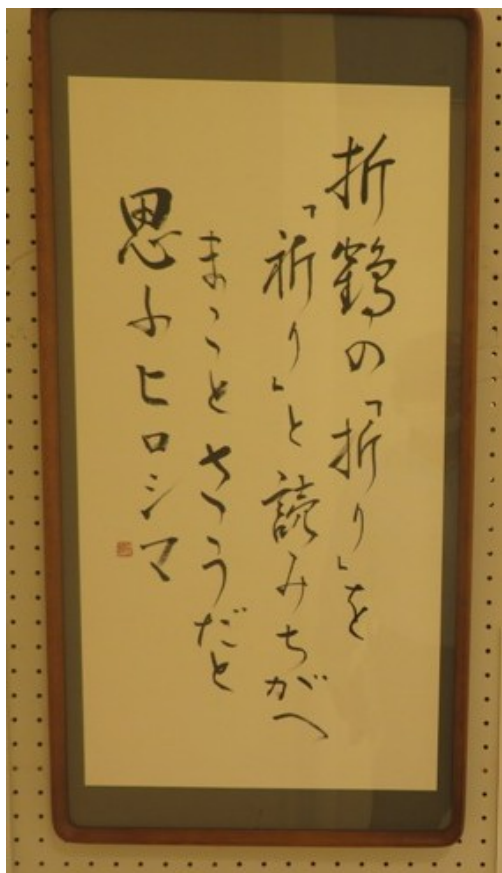 折鶴の「折り」を
「祈り」と読みちがへ
まことさうだと
思ふヒロシマ